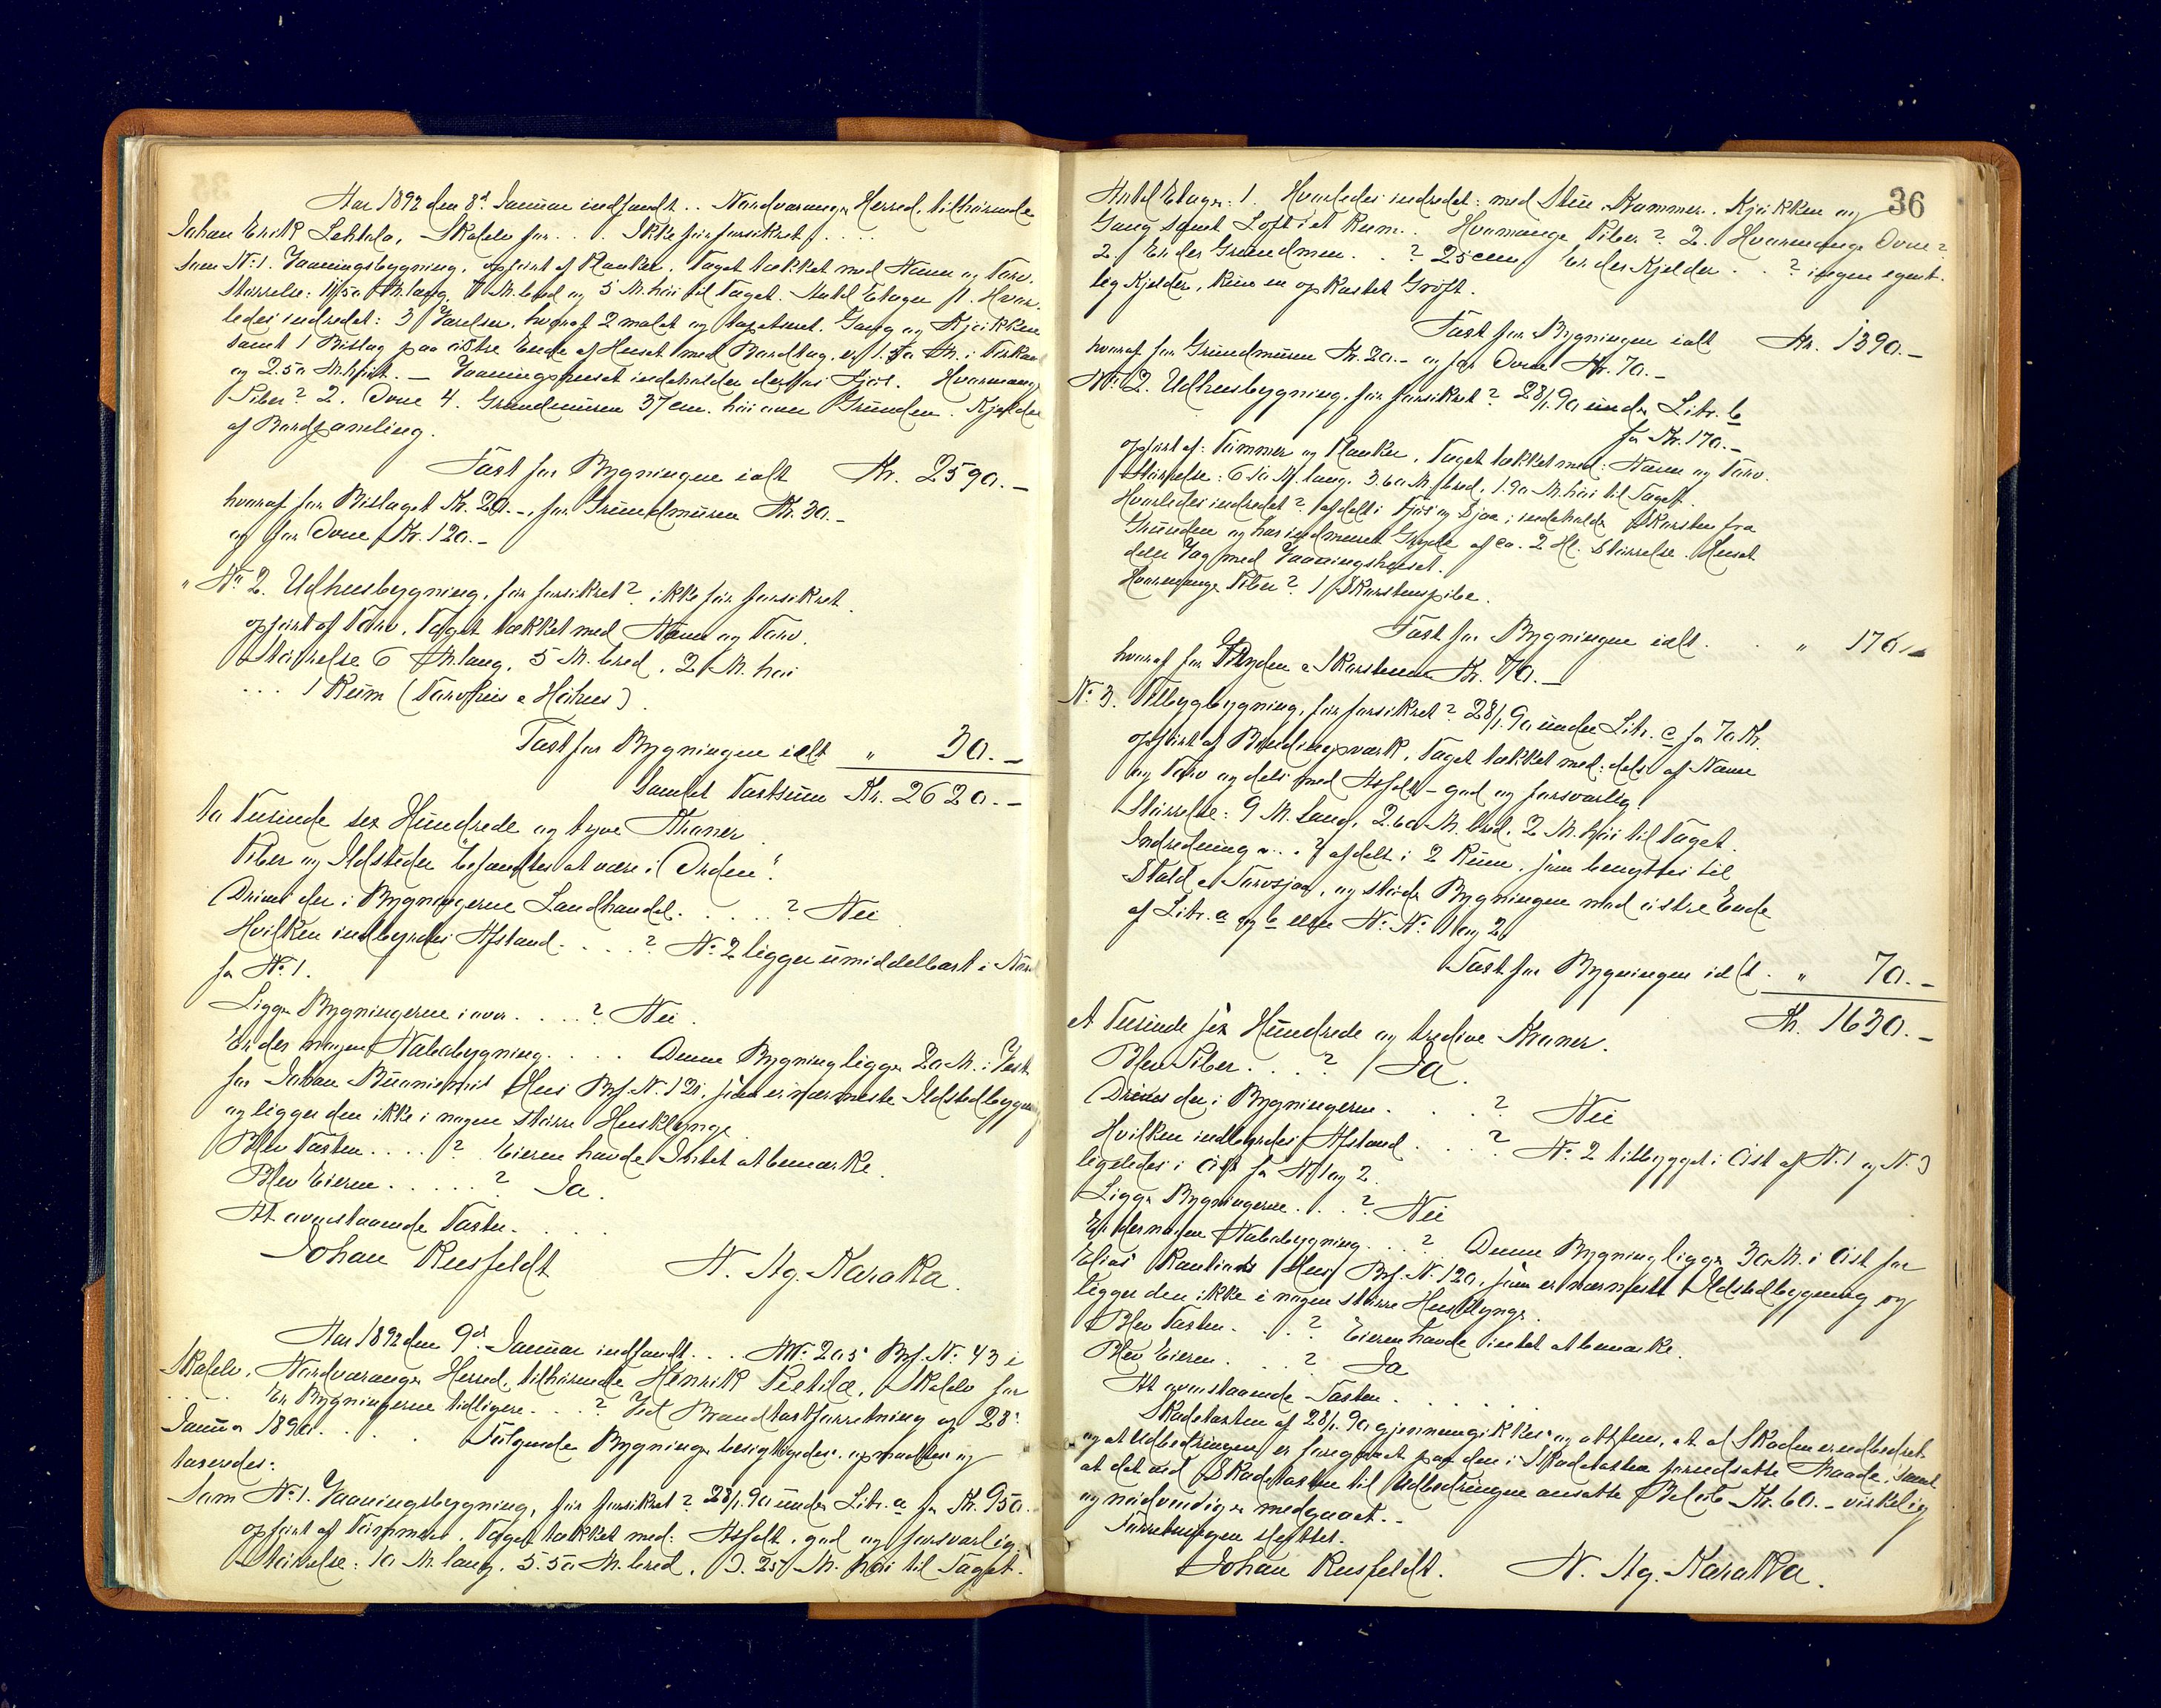 Aar 1892 den 8d Januar indfandt . . Nordvaranger Herred, tilhørende
Johan Erik Lehtola, Skallelv for . . . Ikke før forsikret . . . .
Som No 1. Vaaningsbygning, opført af Planker. Taget tækket med Næver og Torv.
Størrelse: 11,50 M. lang, 7 M. bred og 5 M. høi til Taget. Antal Etager 1. Hvor-
ledes indredet: 3 Værelser, hvoraf 2 malet og tapetseret. Gang og Kjøkken
samt 1 Bislag paa østre Ende af Huset med Bordtag, er 1.50 M. i
og 2.50 M. høit. — Vaaningshuset indeholder desforuden Fjøs. Hvormange
Piber? 2. Ovne 4. Grundmuren 37 cm. høi over Grunden. Kjelder
af
Taxt for Bygningen ialt Kr. 2590.—
hvoraf for Bislaget Kr. 20.—, for Grundmuren Kr. 30.—
og for Ovne Kr. 120.—
" No 2. Udhusbygning, før forsikret? ikke før forsikret.
opført af Torv. Taget tækket med Næver og Torv.
Størrelse 6 M. lang, 5 M. bred, 2 M. høi
. . . 1 Rum (Torvhus & Høhus).
Taxt for Bygningen ialt " 30.—
Samlet Taxtsum Kr. 2620.—
to Tusinde sex Hundrede og tyve Kroner
Piber og Ildsteder "befandtes at være i Orden".
Drives der i Bygningerne Landhandel. . . . . ? Nei
Hvilken indbyrdes Afstand. . . . ? No 2 ligger umiddelbart i Nord
for No 1.
Ligger Bygningerne i over . . . . ? Nei.
Er der nogen Nabobygning. . . . Denne Bygning ligger 20 M. i Vest
for Johan Hus Brf. No 121, som er nærmeste Ildstedbygning
og ligger den ikke i nogen større Husklynge
Blev Taxten. . . . ? Eieren havde Intet at bemærke.
Blev Eieren. . . . . ? Ja.
At ovenstaaende Taxter. . . .
Johan Rusfeldt N. Ag. Karaka.
Aar 1892 den 9de Januar indfandt. . . No 205 Brf. No 43 i
Skallelv, Nordvaranger Herred, tilhørende Henrik Pietilæ, Skallelv for
. . . . Er Bygningerne tidligere. . . ? Ved Brandtaxtforretning af 28.
Januar 1890. . . . Følgende Bygninger besigtigedes, opmaaltes og
taxeredes:
Som No 1. Vaaningsbygning, før forsikret? 28/1.90 under Litr. a for Kr. 950.
opført af Tømmer. Taget tækket med: Asfalt, god og forsvarlig.
Størrelse: 10 M. lang, 5.50 M. bred, 3.25 M. høi til Taget.
36
Antal Etager: 1. Hvorledes indredet: med Stue, Kammer, Kjøkken og
Gang samt Loft i et Rum. Hvormange Piber? 2. Hvormange Ovne?
2. Er der Grundmur. . ? 25 cm. Er der Kjelder . . ? ingen egent-
lig Kjelder, kun en opkastet Grøft.
Taxt for Bygningen ialt Kr. 1390.—
hvoraf for Grundmuren Kr. 20.— og for Ovne Kr. 70.—
No 2. Udhusbygning, før forsikret? 28/1.90 under Litr. b
for Kr. 170.—
opført af: Tømmer og Planker. Taget tækket med: Næver og Torv.
Størrelse: 6.10 M. lang, 3.60 M. bred, 1.90 M. høi til Taget.
Hvorledes indredet? afdelt i Fjøs og Sjaa; indeholder Skorsten fra
Grunden og har indmuret Gryde af ca. 2 Hl. Størrelse. Huset
deler Væg med Vaaningshuset.
Hvormange Piber? 1 Skorstenspibe.
Taxt for Bygningen ialt. . " 170.—
hvoraf for Gryden & Skorstenen Kr. 70.—
No 3. Tilbygbygning, før forsikret? 28/1.90 under Litr. c for 70 Kr.
opført af Bindingsværk, Taget tækket med: dels af Næver
og Torv og dels med Asfalt — god og forsvarlig.
Størrelse: 9 M. lang, 2.60 M. bred, 2 M. høi til Taget.
Indredning . . . ? afdelt i 2 Rum, som benyttes til
Stald & Torvsjaa, og støder Bygningen mod østre Ende
af Litr. a og b eller No No 1 og 2.
Taxt for Bygningen ialt. " 70.—
Kr. 1630.—
et Tusinde sex Hundrede og tredive Kroner.
Blev Piber. . . ? Ja.
Drives der i Bygningerne. . . . ? Nei
Hvilken indbyrdes Afstand . . . ? No 2 tilbygget i Øst af No 1 og No 3
ligeledes i Øst for No 1 og 2.
Ligger Bygningerne. . . ? Nei
Er der nogen Nabobygning. . . ? Denne Bygning ligger 30 M. i Øst for
Elias Hus Brf. No 120, som er nærmeste Ildstedbygning og
ligger den ikke i nogen større Husklynge.
Blev Taxten. . . . ? Eieren havde intet at bemærke.
Blev Eieren. . . . ? Ja
At ovenstaaende Taxter. . . . .
Skadetaxten af 28/1.90 gjennemgikkes og at Skaden er udbedret
og at Udbedringen er foregaaet paa den i Skadetaxten forudsatte Maade, samt
at det ved Skadetaxten til Udbedringen ansatte Beløb Kr. 60.— virkelig
og nødvendigen medgaaet.—
Forretningen sluttet.
Johan Rusfeldt. N. Ag. Karaka.